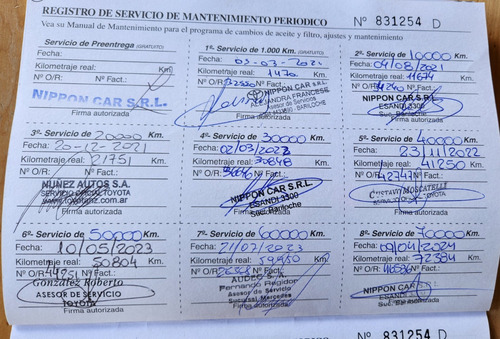 REGISTRO DE SERVICIO DE MANTENIMIENTO PERIODICO Nº 831254 D
Vea su Manual de Mantenimiento para el programa de cambios de aceite y filtro, ajustes y mantenimiento
Servicio de Preentrega (GRATUITO)
Fecha:
Kilometraje real: Km
Nº O/R: Nº Fact.:
NIPPON CAR S.R.L.
Firma autorizada
1º- Servicio de 1.000 Km. (GRATUITO)
Fecha: 03-03-2021
Kilometraje real: 1470 Km.
Nº O/R: Nº Fact.:
NIPPON CAR S.R.L.
ALEJANDRA FRANCESE
Asesor de Servicios
BARILOCHE
Firma autorizada
2º- Servicio de 10000 Km.
Fecha: 04/08/2021
Kilometraje real: 11674 Km.
Nº O/R: Nº Fact.:
NIPPON CAR S.R.L.
ESANDI 3300
Suc. Bariloche
Firma autorizada
3º- Servicio de 20000 Km.
Fecha: 20-12-2021
Kilometraje real: 21751 Km.
Nº O/R: Nº Fact.:
NUÑEZ AUTOS S.A.
SERVICIO OFICIAL TOYOTA
Firma autorizada
4º- Servicio de 30000 Km.
Fecha: 02/03/2022
Kilometraje real: 30848 Km.
Nº O/R: Nº Fact.:
NIPPON CAR S.R.L.
ESANDI 3300
Suc. Bariloche
Firma autorizada
5º- Servicio de 40000 Km.
Fecha: 23/11/2022
Kilometraje real: 41250 Km.
Nº O/R: 42747 Nº Fact.:
GUSTAVO MOSCATELLI
TOYOTA
Firma autorizada
6º- Servicio de 50000 Km.
Fecha: 10/05/2023
Kilometraje real: 50804 Km.
Nº O/R: 44951 Nº Fact.:
González Roberto
ASESOR DE SERVICIO
TOYOTA
Firma autorizada
7º- Servicio de 60000 Km.
Fecha: 21/07/2023
Kilometraje real: 59950 Km.
Nº O/R: Nº Fact.:
AUDEC S.A.
Fernando Regidor
Asesor de Servicio
Sucursal Mercedes
Firma autorizada
8º- Servicio de 70000 Km.
Fecha: 09/04/2024
Kilometraje real: 72384 Km.
Nº O/R: Nº Fact.:
NIPPON CAR
ESANDI
Suc. Bariloche
Firma autorizada
Nº 831254 D